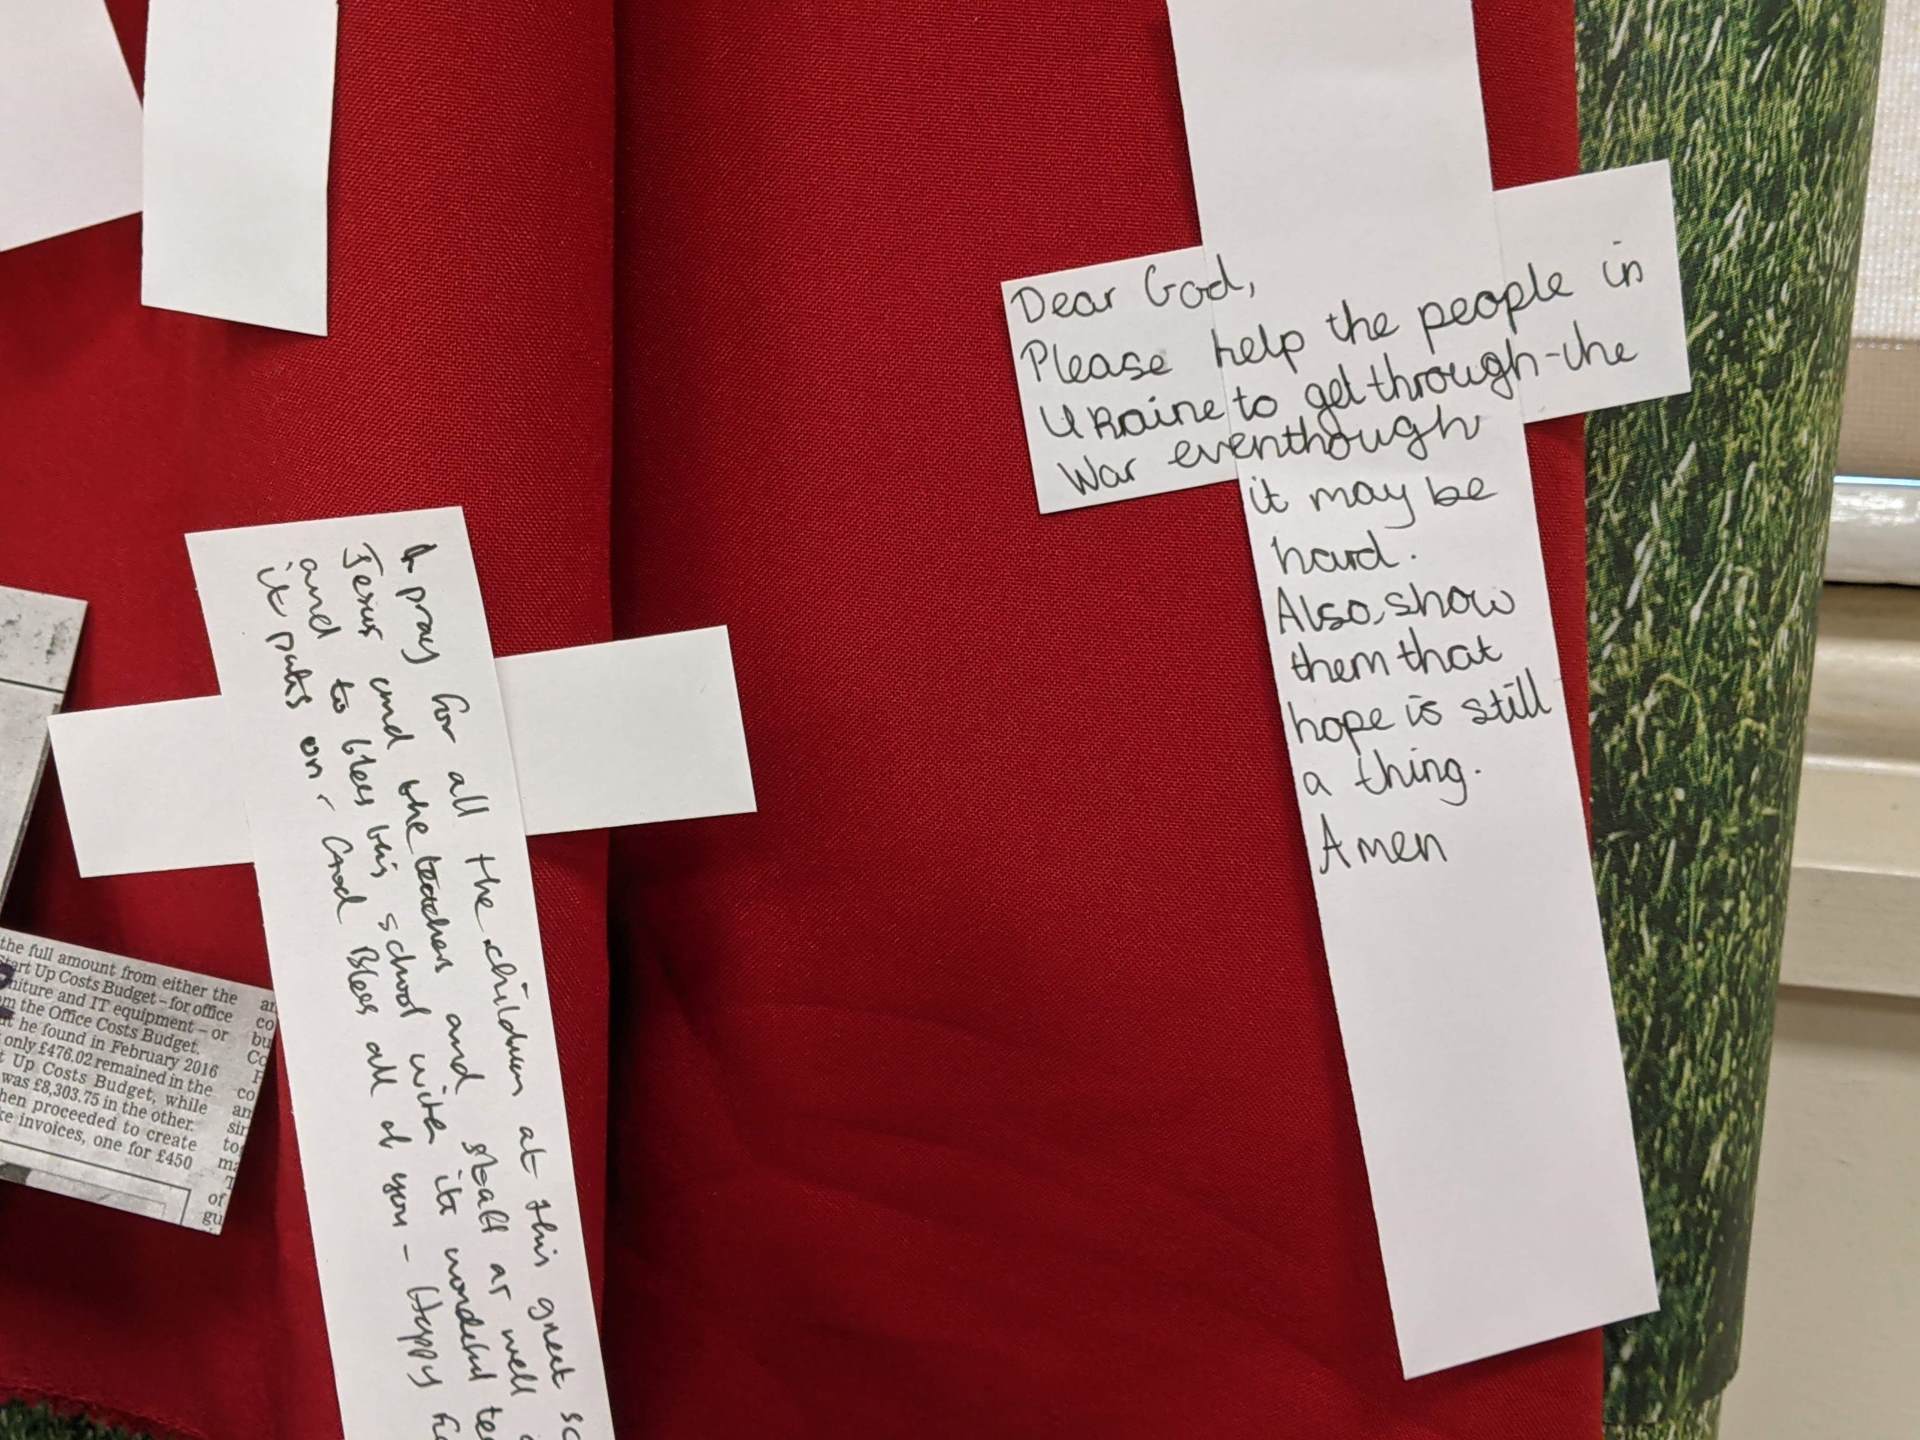 Dear God,
Please help the people in
Ukraine to get through the
War eventhough
it may be
hard.
Also, show
them that
hope is still
a thing.
Amen
I pray for all the children at this great
Jesus and the teachers and staff as well
and to bless this school with its wonderful
it puts on - God Bless all of you - Happy
the full amount from either the
Start Up Costs Budget – for office
niture and IT equipment – or
the Office Costs Budget.
he found in February 2016
only £476.02 remained in the
Up Costs Budget, while
was £8,303.75 in the other.
hen proceeded to create
invoices, one for £450